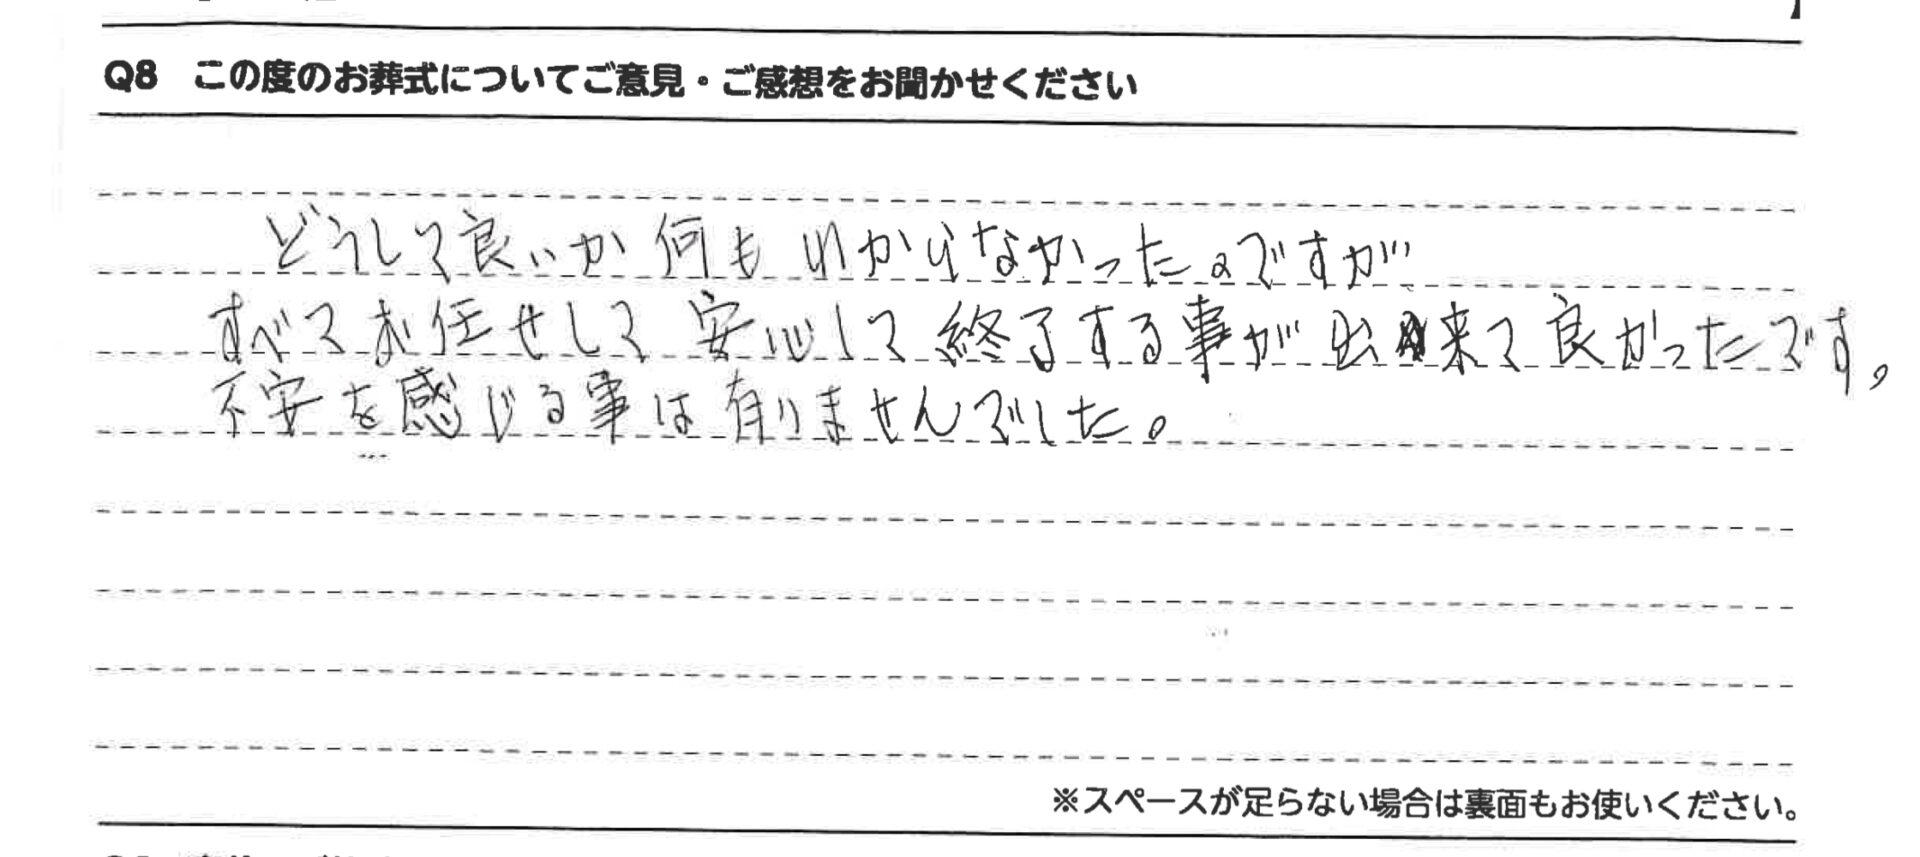 Q8 この度のお葬式についてご意見・ご感想をお聞かせください
どうして良いか何もわからなかったのですが
すべてお任せして安心して終了する事が出来て良かったです。
不安を感じる事は有りませんでした。
※スペースが足らない場合は裏面もお使いください。